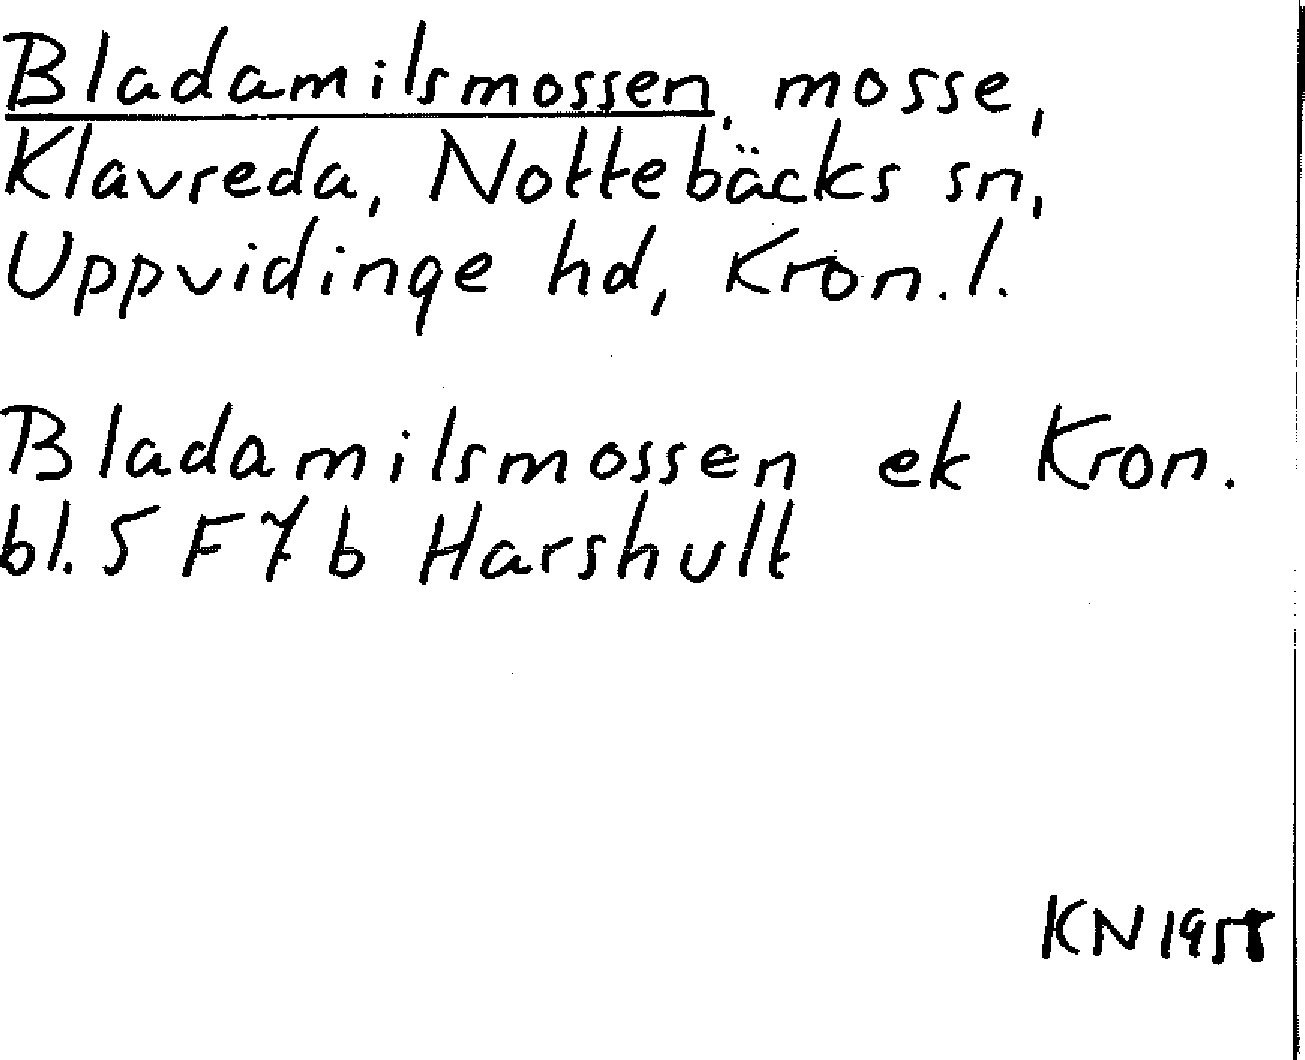 Bladamilsmossen, mosse,
Klavreda, Nottebäcks sn,
Uppvidinge hd, Kron. l.
Bladamilsmossen ek Kron.
bl. 5 F 7 b Harshult
KN